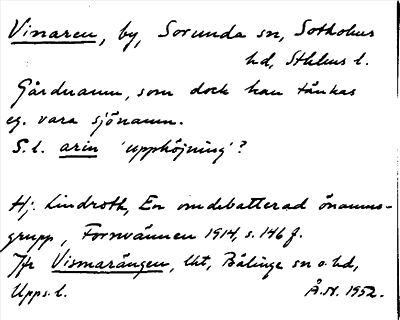 Vinaren, by, Sorunda sn, Sotholms
hd, Sthlms l.
Gårdnamn, som dock kan tänkas
eg. vara sjönamn.
S. l. arin 'upphöjning'?
Hj. Lindroth, En omdebatterad önamns-
grupp, Fornvännen 1914, s. 146 f.
Jfr Vismarängen, lht, Bälinge sn o. hd,
Upps. l. Å.N. 1952.